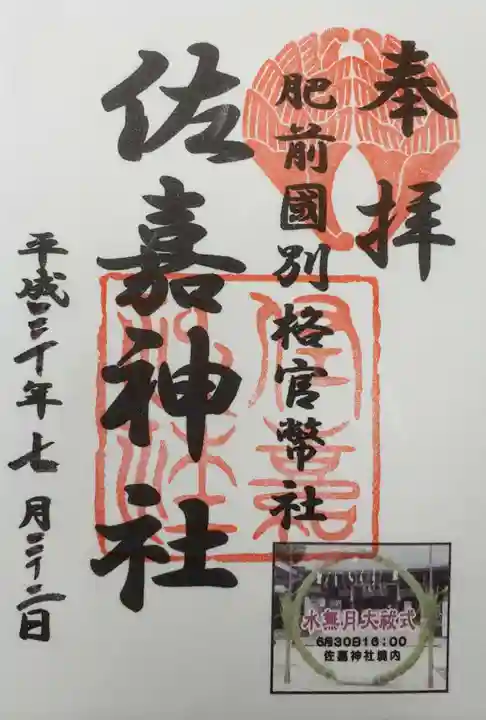 奉拝
肥前國別格官幣社
佐嘉神社
佐嘉神社
平成三十年七月二十二日
水無月大祓式
6月30日16:00
佐嘉神社境内